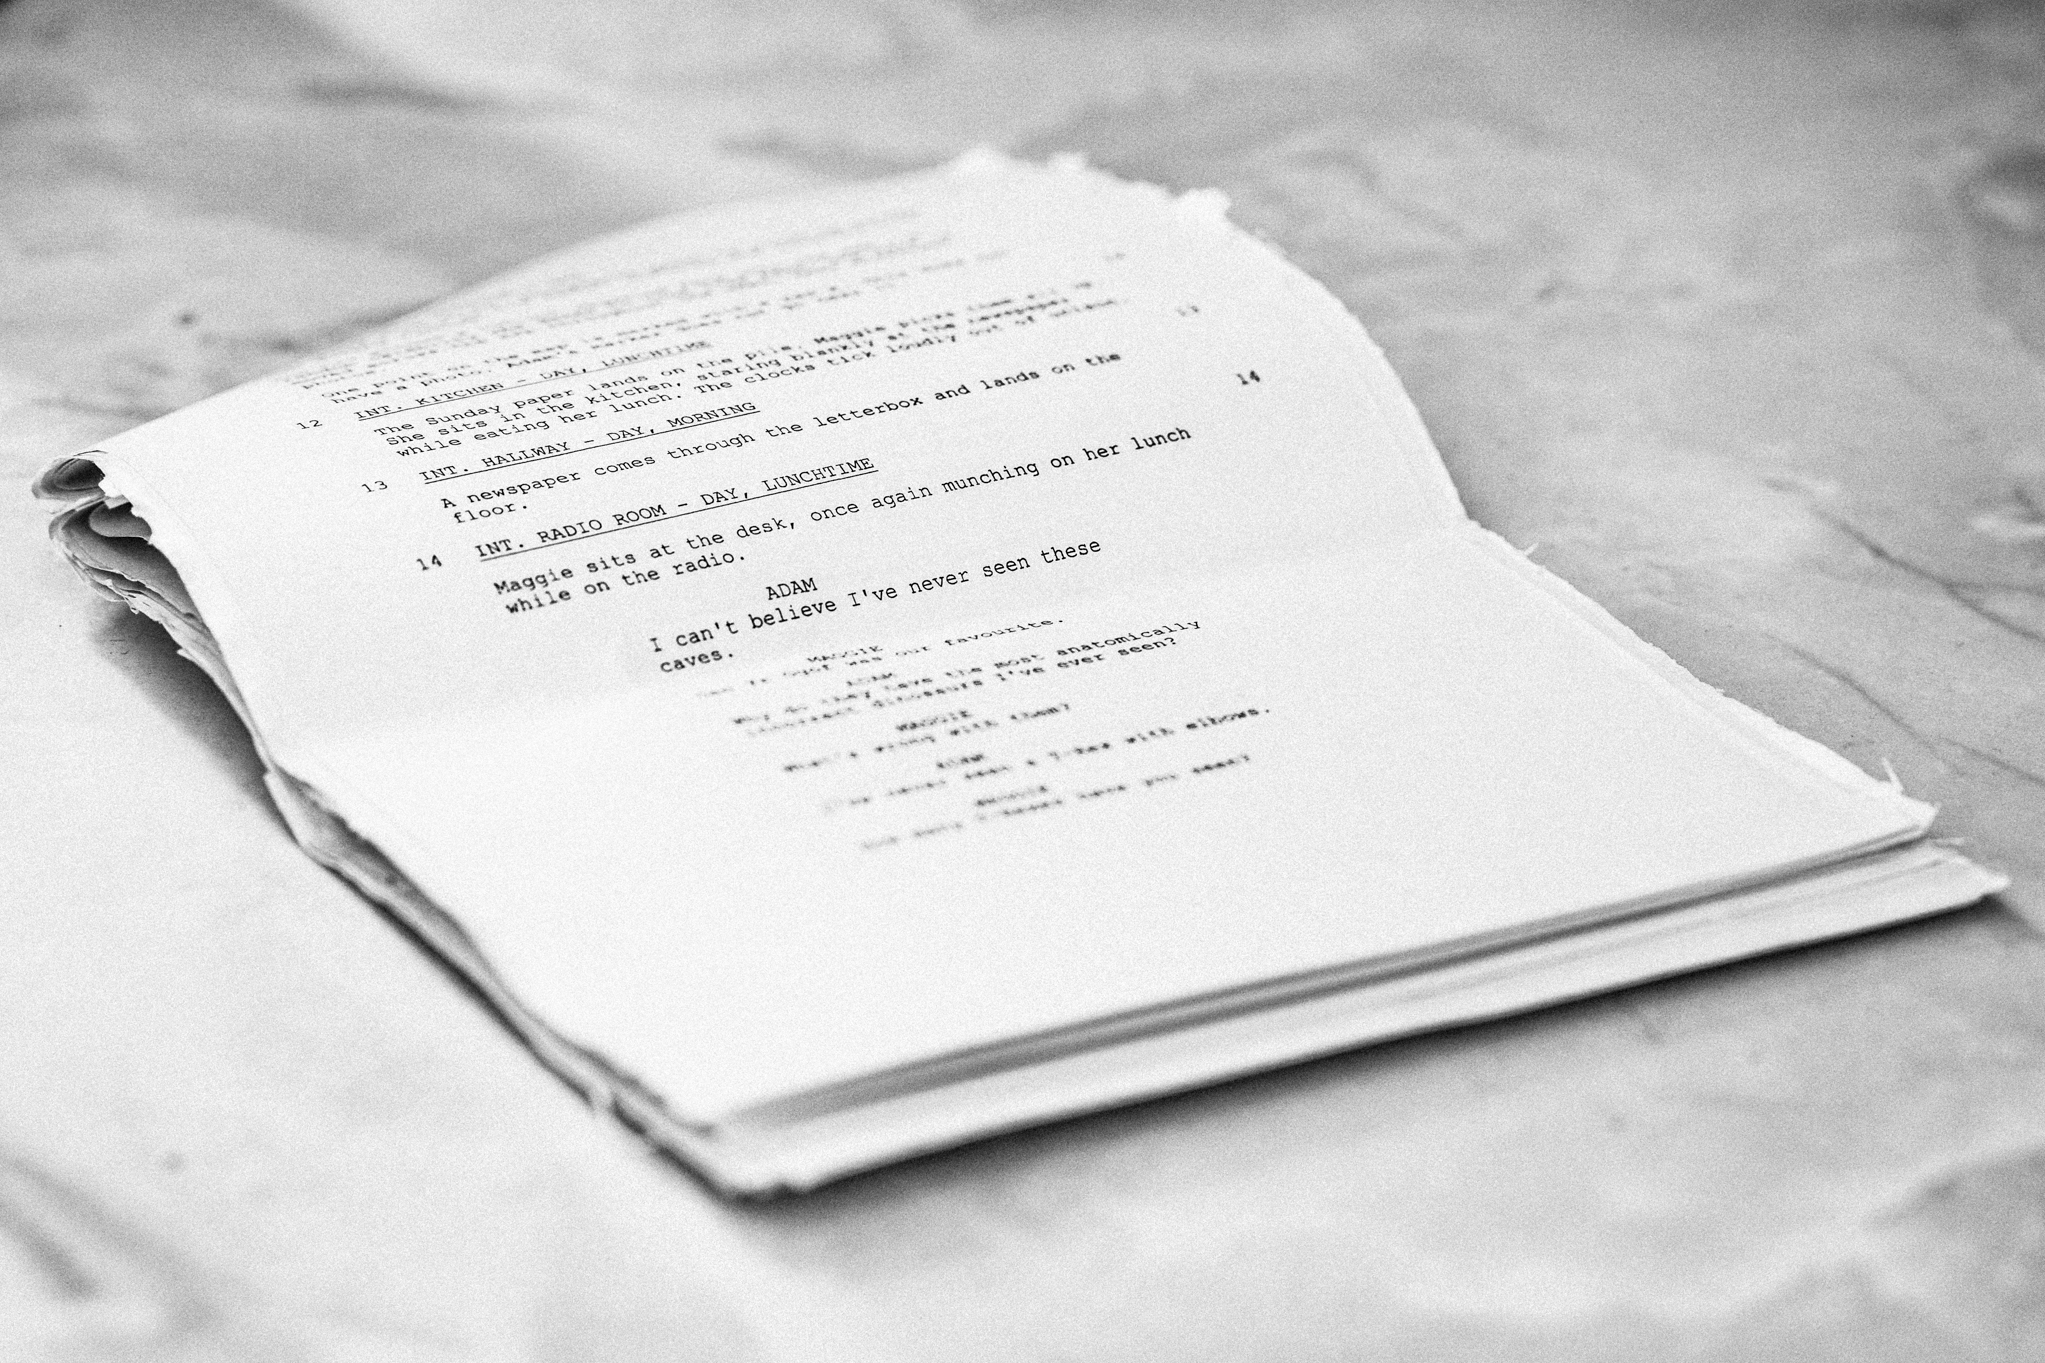 one point on the map is marked with a
have a photo. Adam's marker does not go near it.
12 INT. KITCHEN - DAY, LUNCHTIME
The Sunday paper lands on the pile. Maggie picks them all up
She sits in the kitchen, staring blankly at the newspaper
while eating her lunch. The clocks tick loudly out of unison.
13 INT. HALLWAY - DAY, MORNING 13
A newspaper comes through the letterbox and lands on the
floor.
14 INT. RADIO ROOM - DAY, LUNCHTIME 14
Maggie sits at the desk, once again munching on her lunch
while on the radio.
ADAM
I can't believe I've never seen these
caves.
MAGGIE
was our favourite.
ADAM
Why do they have the most anatomically
incorrect dinosaurs I've ever seen?
MAGGIE
What's wrong with them?
ADAM
I've never seen a T-Rex with elbows.
MAGGIE
How many T-Rexes have you seen?